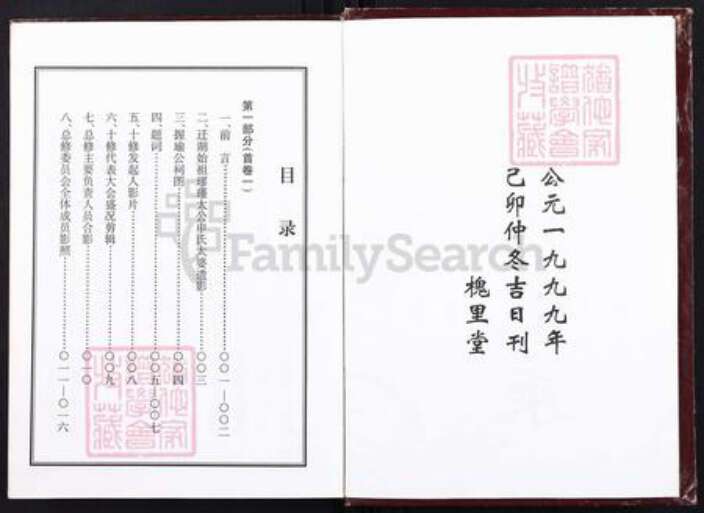 公元一九九九年
己卯仲冬吉日刊
槐里堂
目录
第一部分(首卷一)
一、前言……〇〇一—〇〇二
二、迁湖始祖 太公申氏大 遗影……〇〇三
三、握瑜公祠图……〇〇四
四、题词……〇〇五—〇〇七
五、十修发起人影片……〇〇八
六、十修代表大会盛况剪辑……〇〇九
七、总修主要负责人员合影……〇一〇
八、总修委员会全体成员影照……〇一一—〇一六
FamilySearch